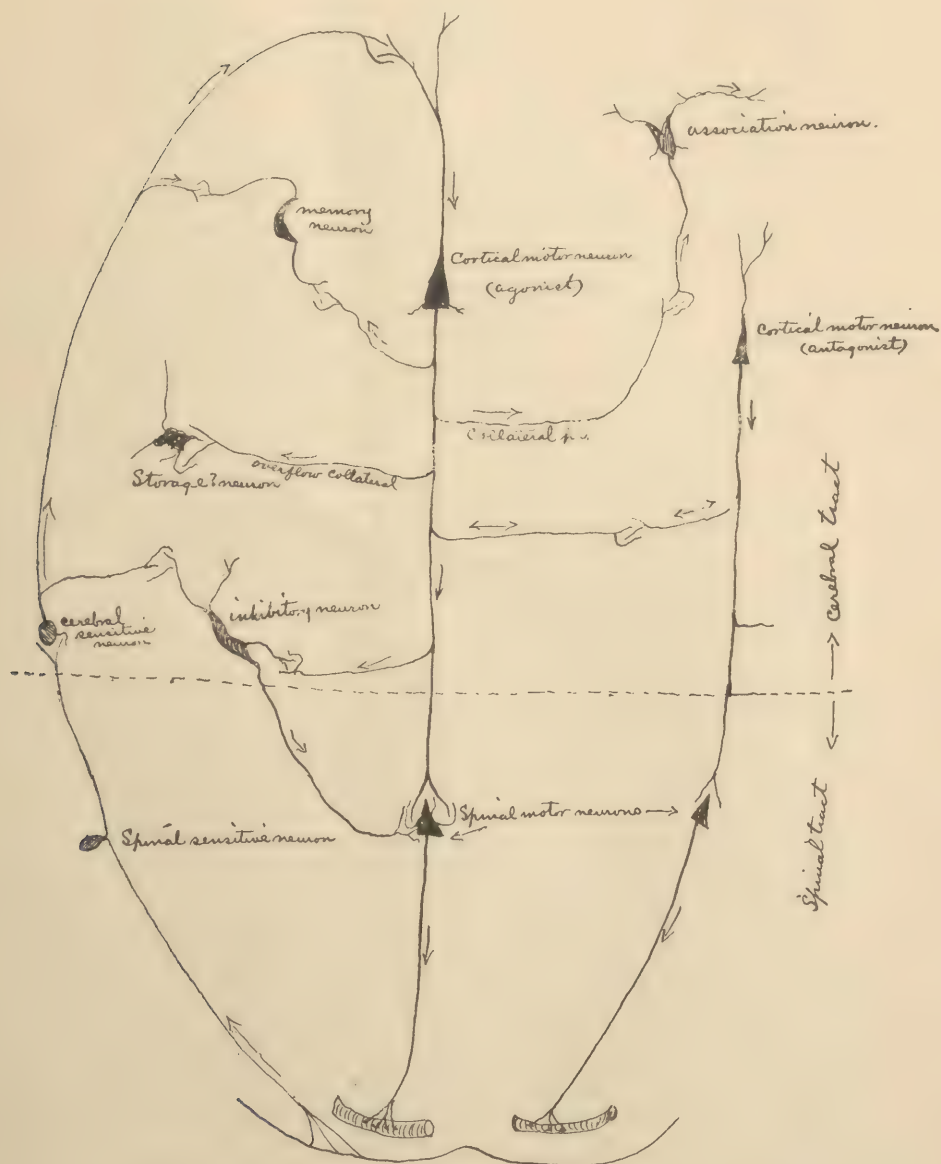 association neuron.
memory
neuron
Cortical motor neuron
(agonist)
Cortical motor neuron
(antagonist)
Collateral
overflow collateral
Storage? neuron
inhibitory neuron
cerebral
sensitive
neuron
cerebral tract
Spinal motor neurons
Spinal sensitive neuron
Spinal tract